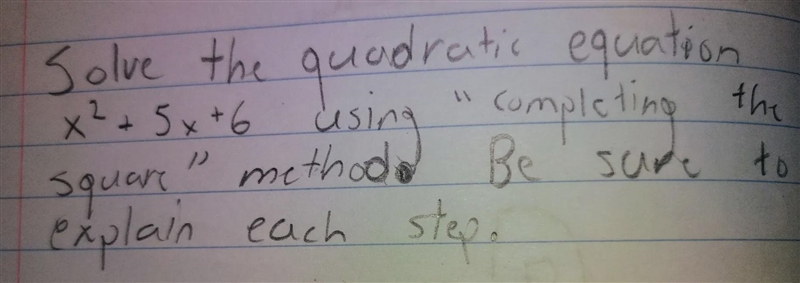 Solve the quadratic equation
x² + 5x + 6 using "completing the
square" method. Be sure to
explain each step.